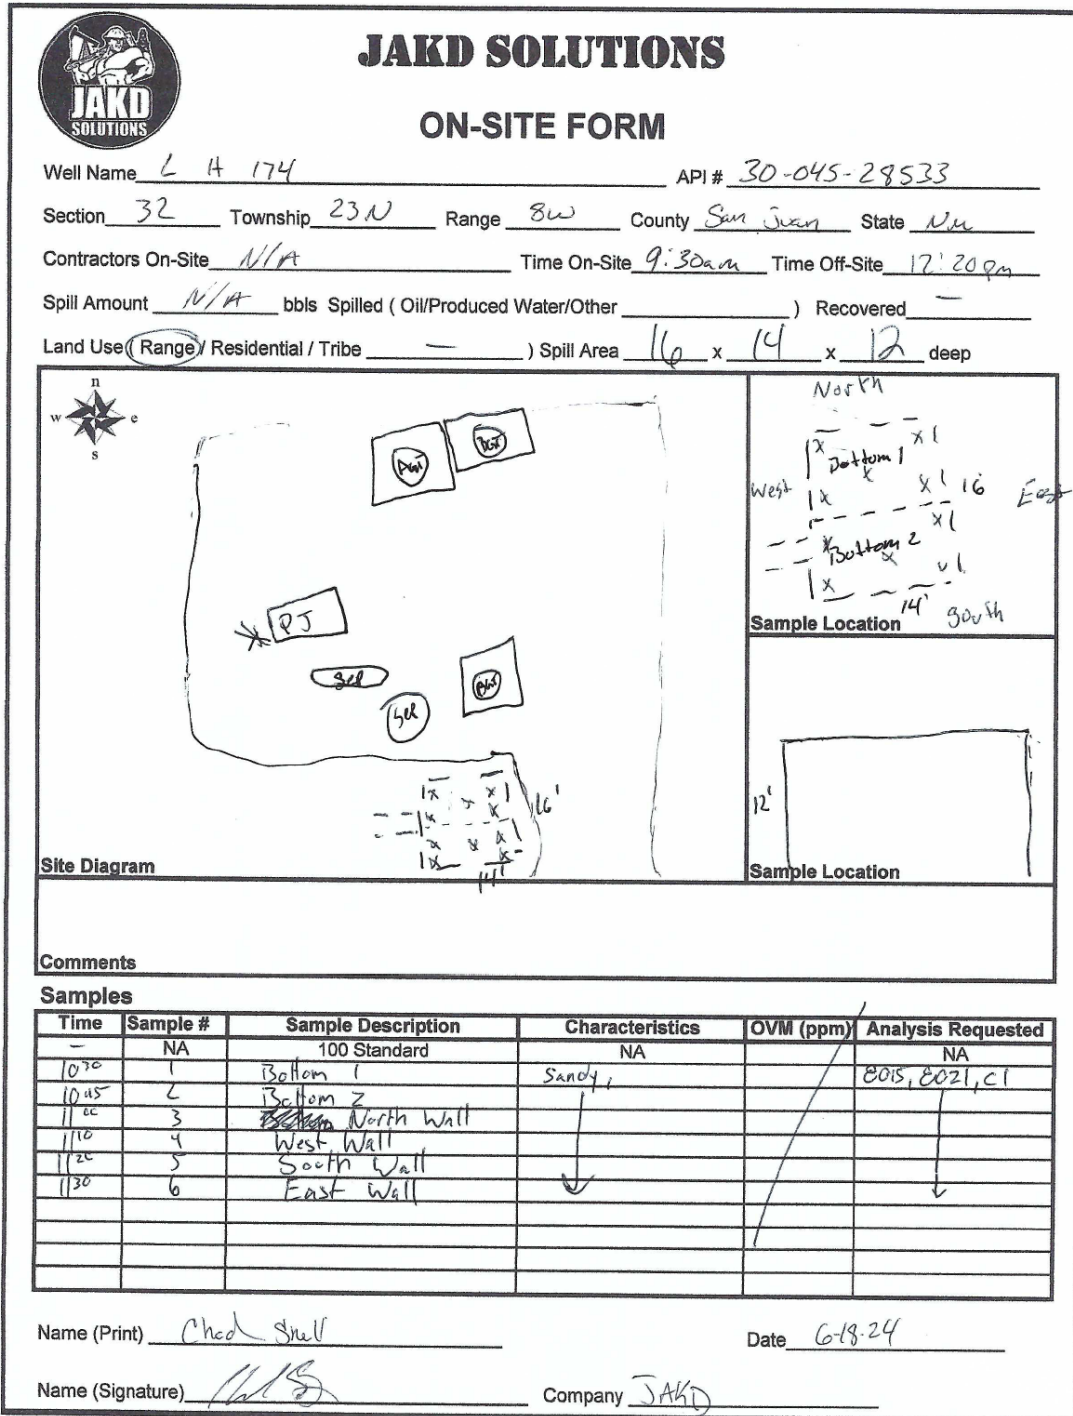 JAKD
SOLUTIONS
JAKD SOLUTIONS
ON-SITE FORM
Well Name L H 174 API # 30-045-28533
Section 32 Township 23N Range 8W County San Juan State Nm
Contractors On-Site N/A Time On-Site 9:30am Time Off-Site 12:20pm
Spill Amount N/A bbls Spilled ( Oil/Produced Water/Other ) Recovered —
Land Use ( Range / Residential / Tribe — ) Spill Area 16 x 14 x 12 deep
n
w e
s
AGT
BGT
PJ
Sep
BGT
x x
x
x x
x x
x
x x
16'
14'
Site Diagram
North
x x
Bottom 1
x
West x x 16 East
x x
Bottom 2
x
x
14'
South
Sample Location
12'
Sample Location
Comments
Samples
Time Sample # Sample Description Characteristics OVM (ppm) Analysis Requested
— NA 100 Standard NA NA
10 30 1 Bottom 1 Sandy, 8015, 8021, Cl
10 45 2 Bottom 2
11 00 3 North Wall
11 10 4 West Wall
11 20 5 South Wall
11 30 6 East Wall
Name (Print) Chad Snell Date 6-18-24
Name (Signature) Company JAKD